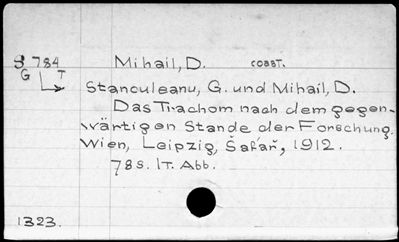 S 784 Mihail, D. coaвт.
G T
Stanculeanu, G. und Mihail, D.
Das Trachom nach dem gegen-
wärtigen Stande der Forschung.
Wien, Leipzig, Šafář, 1912.
78 s. 1T. Abb.
1323.